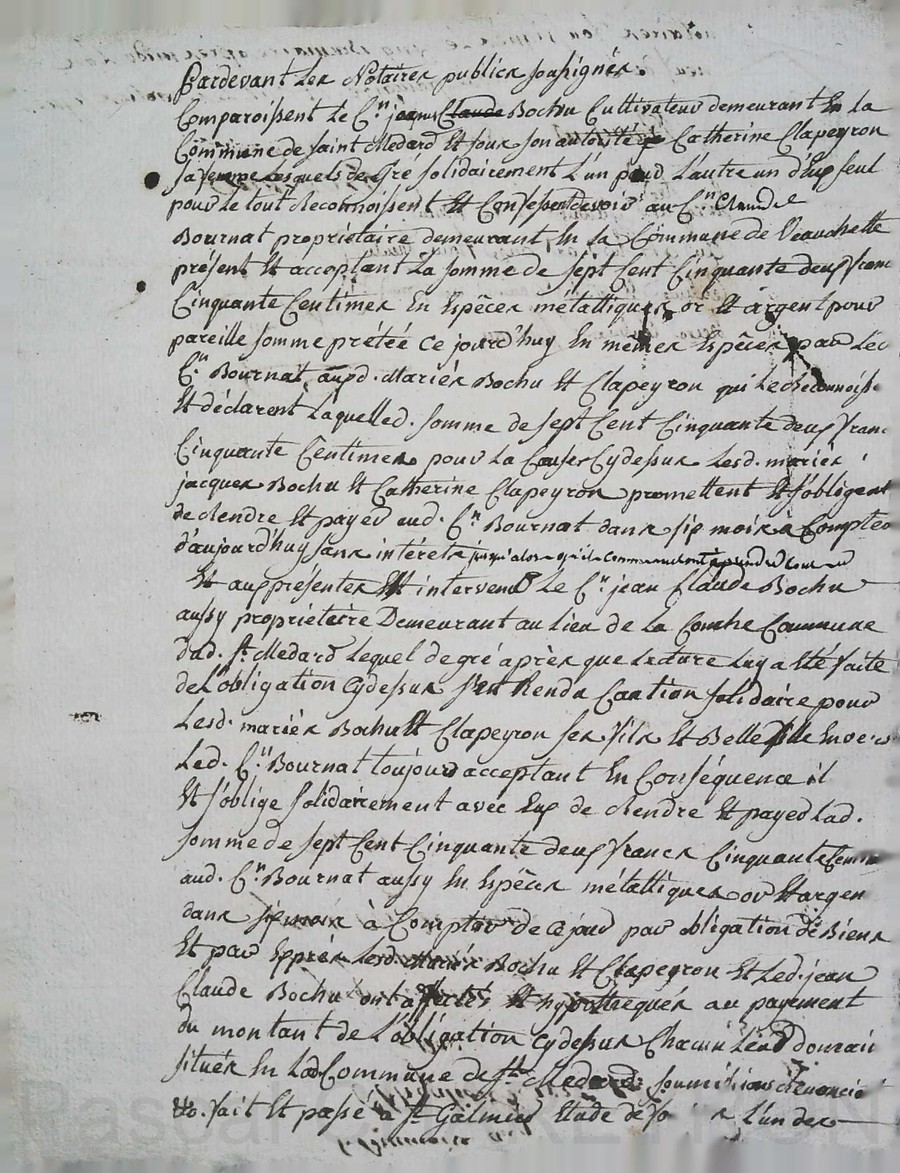 Pardevant Les Notaires publics soussignés
Comparoissent Le C.n jacques Claude Bochu Cultivateur demeurant En La
Commune de Saint Medard Et sous son autorité Catherine Clapeyron
sa femme Lesquels de Gré solidairement L'un pour L'autre un d'Eux seul
pour Le tout Reconnoissent Et Confessent devoir au C.n Claude
Bournat propriétaire demeurant En La Commune de Veauchette
présent Et acceptant La somme de sept Cent Cinquante deux francs
Cinquante Centimes En Espèces métalliques or Et argent pour
pareille somme prétéé Ce jourd'huy En mêmes Espèces par Led
C.n Bournat auxd. Mariés Bochu Et Clapeyron qui Le Reconnoiss
Et déclarent Laquelled. somme de sept Cent Cinquante deux franc
Cinquante Centimes pour La Cause Cydessus Lesd. mariés
jacques Bochu Et Catherine Clapeyron promettent Et s'obligent
de Rendre Et payer aud. C.n Bournat dans six mois à Compter
d'aujourd'huy sans intérets jusqu'alors qu'ils Commenceront à prendre Cours
Et aux présentes Est intervenu Le C.n jean Claude Bochu
aussy propriétaire Demeurant au Lieu de La Combe Commune
dud. St. Medard Lequel de gré après que Lecture Luy a Eté faite
de L'obligation Cydessus s'est Rendu Caution solidaire pour
Lesd. mariés Bochu Et Clapeyron ses fils Et Belle fille Envers
Led. C.n Bournat toujours acceptant En Conséquence il
Et s'oblige solidairement avec Eux de Rendre Et payer Lad.
somme de sept Cent Cinquante deux francs Cinquante Centim
aud. C.n Bournat aussy En Espèces métalliques or Et argen
dans six mois à Compter de Ce jour par obligation de Biens
Et par Exprès Lesd. Mariés Bochu Et Clapeyron Et Led. jean
Claude Bochu ont affectés Et hypothéqués au payement
du montant de L'obligation Cydessus Chacun Leurs
situés En Lad Commune de St. Medard soumissions Renonciá
&o. fait Et passé à St. Galmier Etude de L'un des